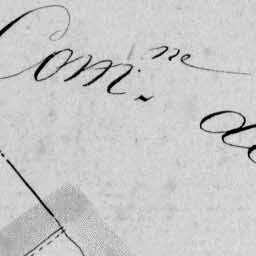 Com.ne de